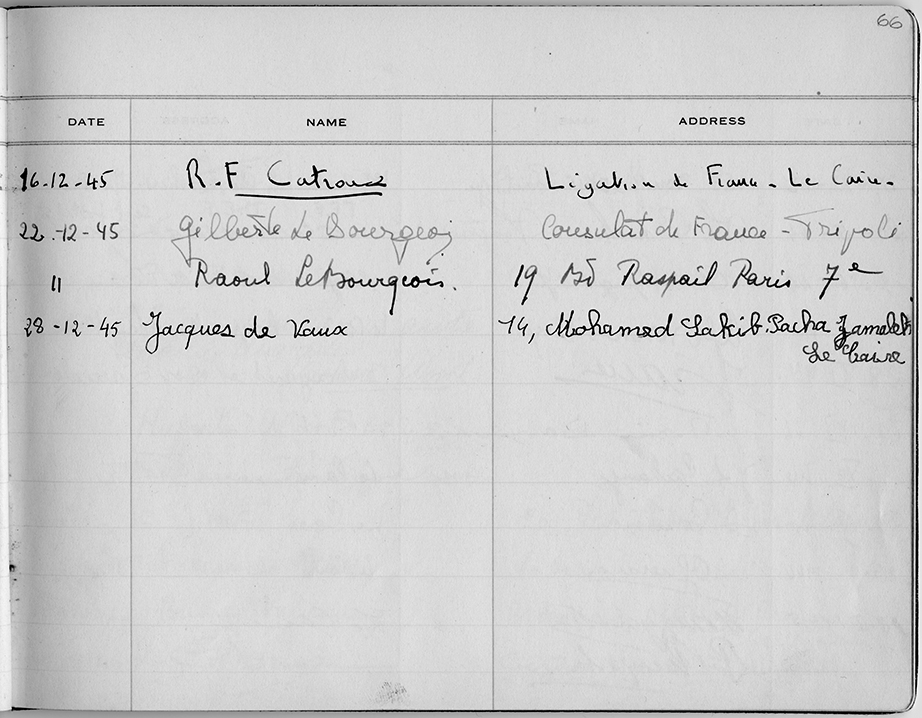 66
DATE NAME ADDRESS
16-12-45 R.F Catroux Légation de France - Le Caire -
22-12-45 Gilberte Le Bourgeois Consulat de France - Tripoli
" Raoul LeBourgeois. 19 Bd Raspail Paris 7e
28-12-45 Jacques de Vaux 14, Mohamed Sakib Pacha Zamalek
Le Caire